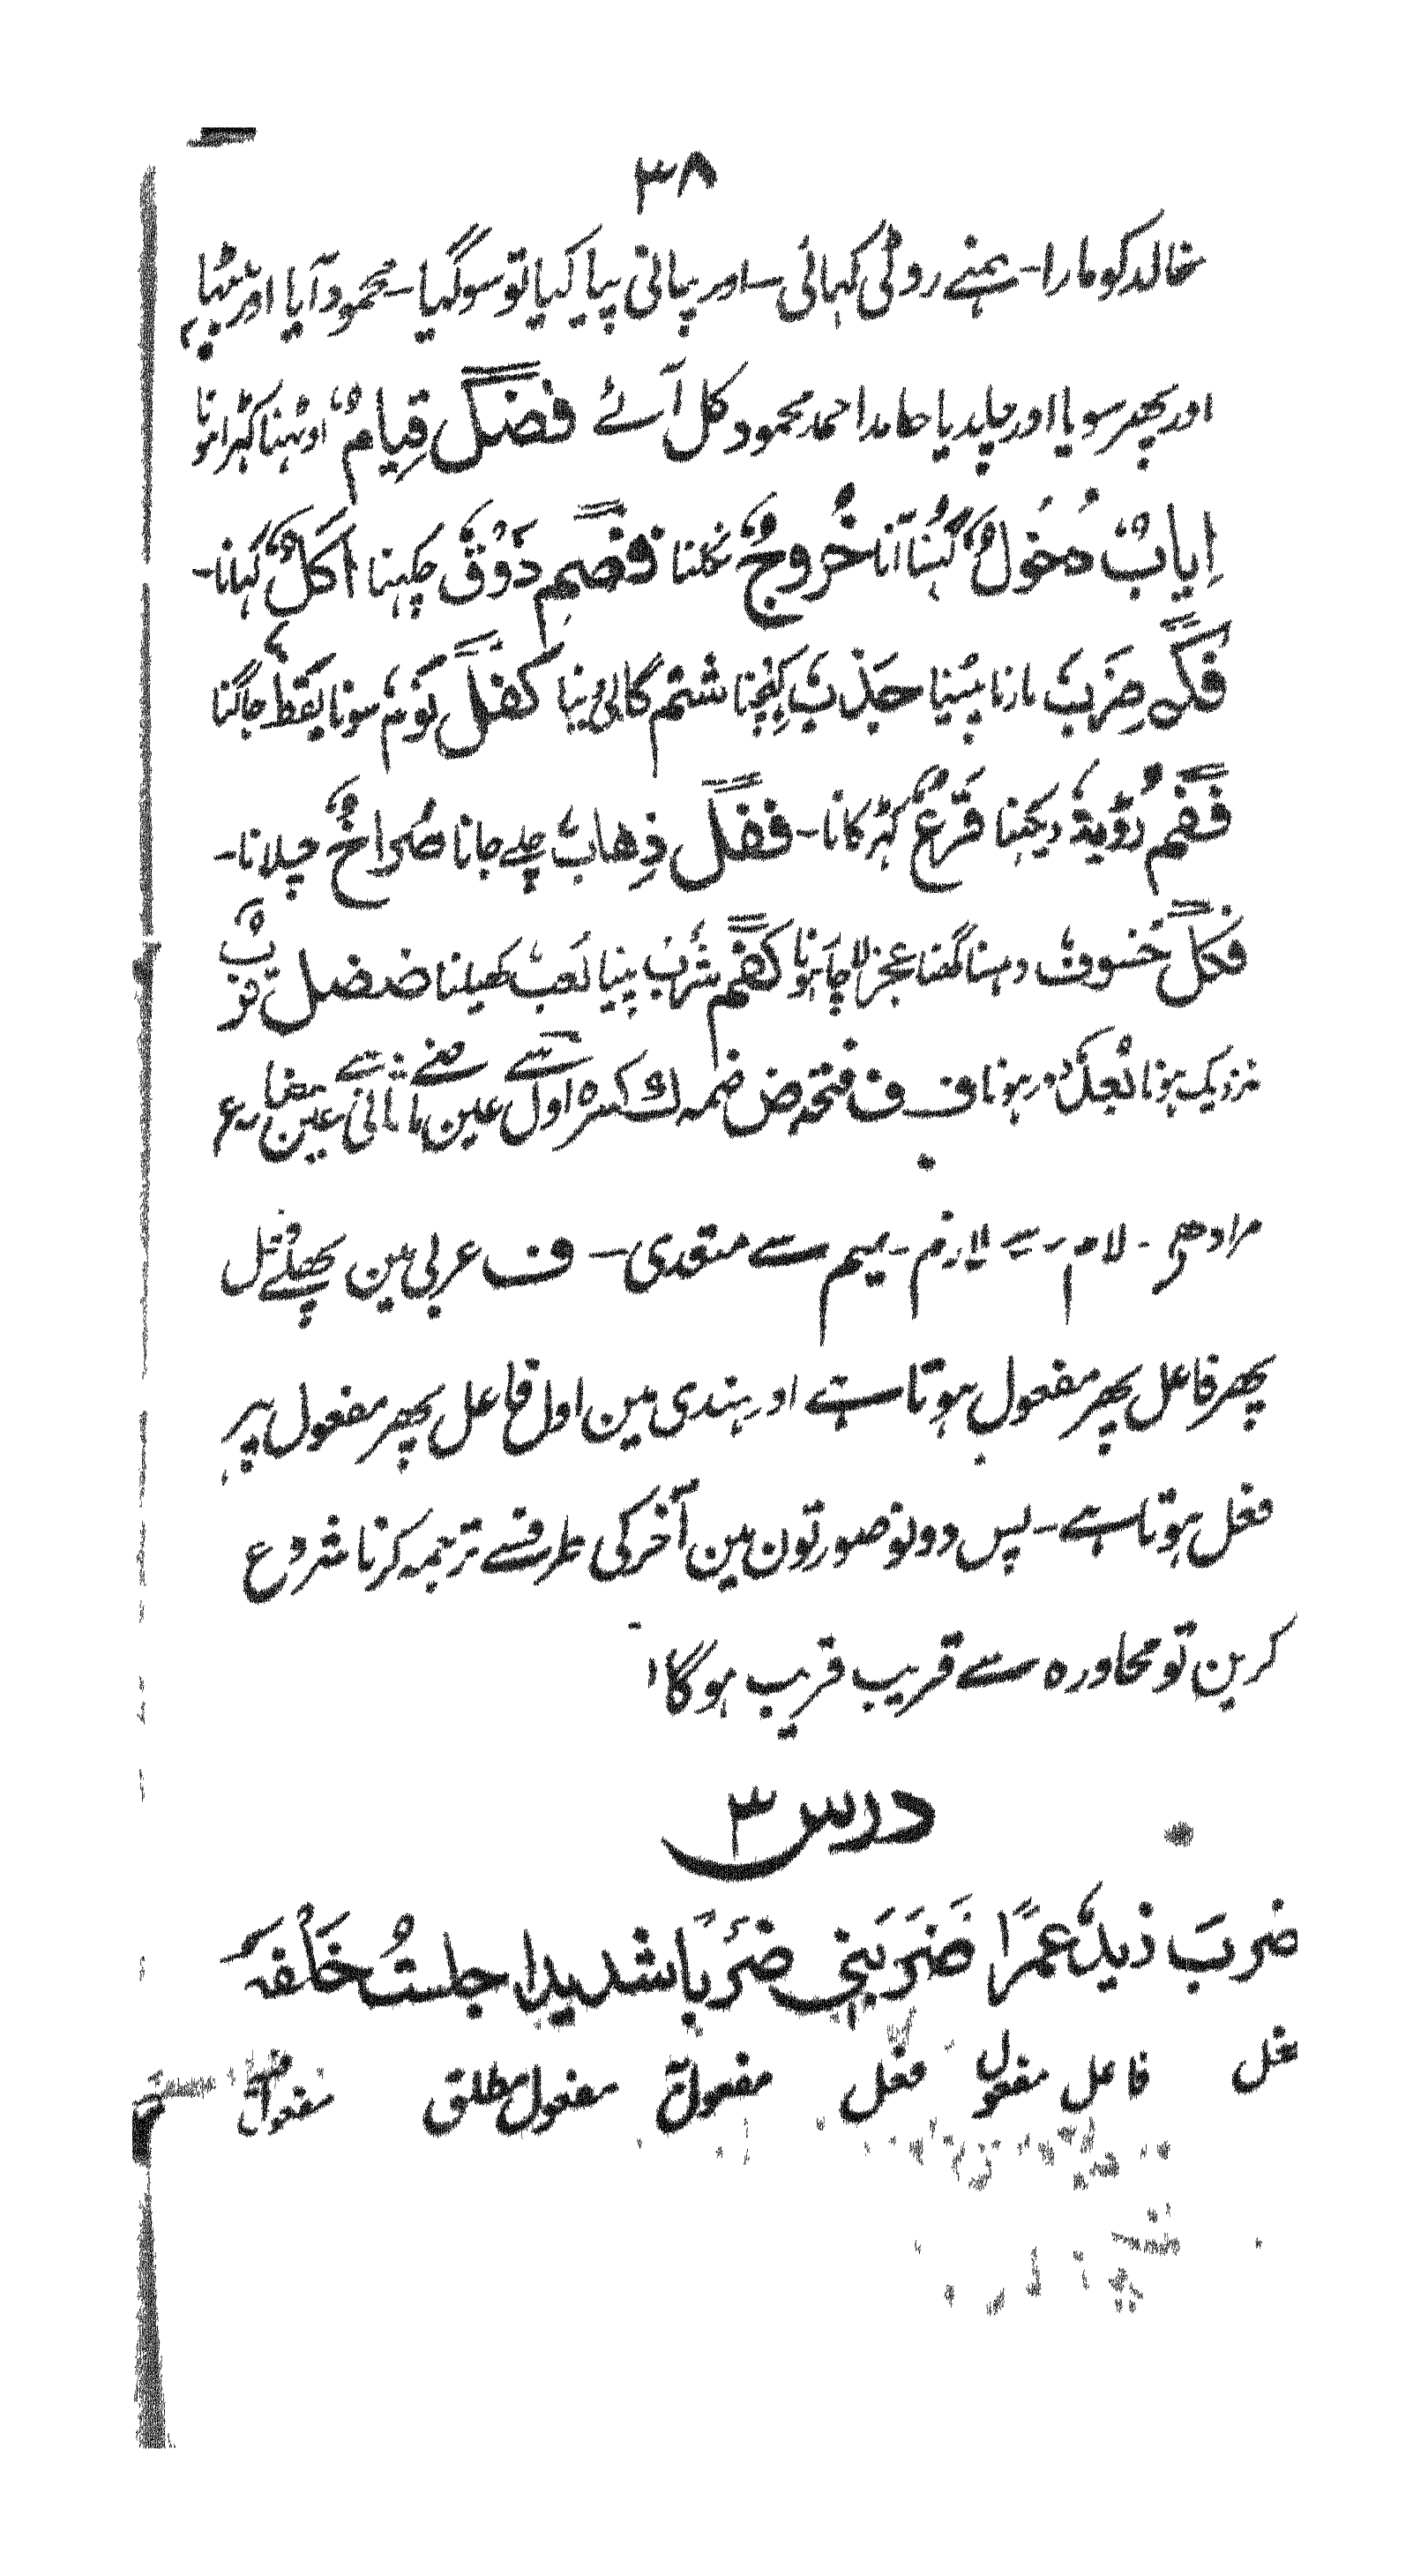 ۳۸
خالد کو مارا - ہمنے روٹی کہائی - اور پانی پیا کیا تو سوگیا - محمود آیا اور بیٹہا
اور پھر سویا اور چلدیا حامد احمد محمود کل آئے فضل قِیامٌ اوٹہنا کہڑا ہونا
اِیابٌ دُخُولٌ گہنا آنا خُروجٌ نکلنا فضم ذَوْقٌ چکہنا اَکلٌ کہانا -
فکم ضَربٌ مارنا پیٹنا جَذبٌ کھینچنا شتم گالی دینا کفل نَومٌ سونا یَقَظٌ جاگنا
فَفم رُؤیةٌ دیکہنا قَرعٌ کہڑکانا - ففل ذِهابٌ چلے جانا صُراخٌ چلانا -
فکل خُسوفٌ دہسنا گہنا عجز لاچار ہونا کفم شُربٌ پینا لَعبٌ کھیلنا ضضل قربٌ
نزدیک ہونا بُعدٌ دور ہونا ف ف فتحہ ض ضمہ ك کسرہ اول سے عین ماضی ثانی سے عین مضارع
مراد ھے - لام سے لازم - میم سے متعدی - ف عربی مین پھلے فعل
پھر فاعل پھر مفعول ہوتا ہے اور ہندی مین اول فاعل پھر مفعول پر
فعل ہوتا ہے - پس دونو صورتون مین آخر کی طرفسے ترجمہ کرنا شروع
کرین تو محاورہ سے قریب قریب ہوگا
درس ۳
ضربَ زیدٌ عمرًا ضَرَبَنی ضَرْبًا شدیدا جلستُ خَلْفَہ
فعل فاعل مفعول فعل مفعول مفعول مطلق مفعول